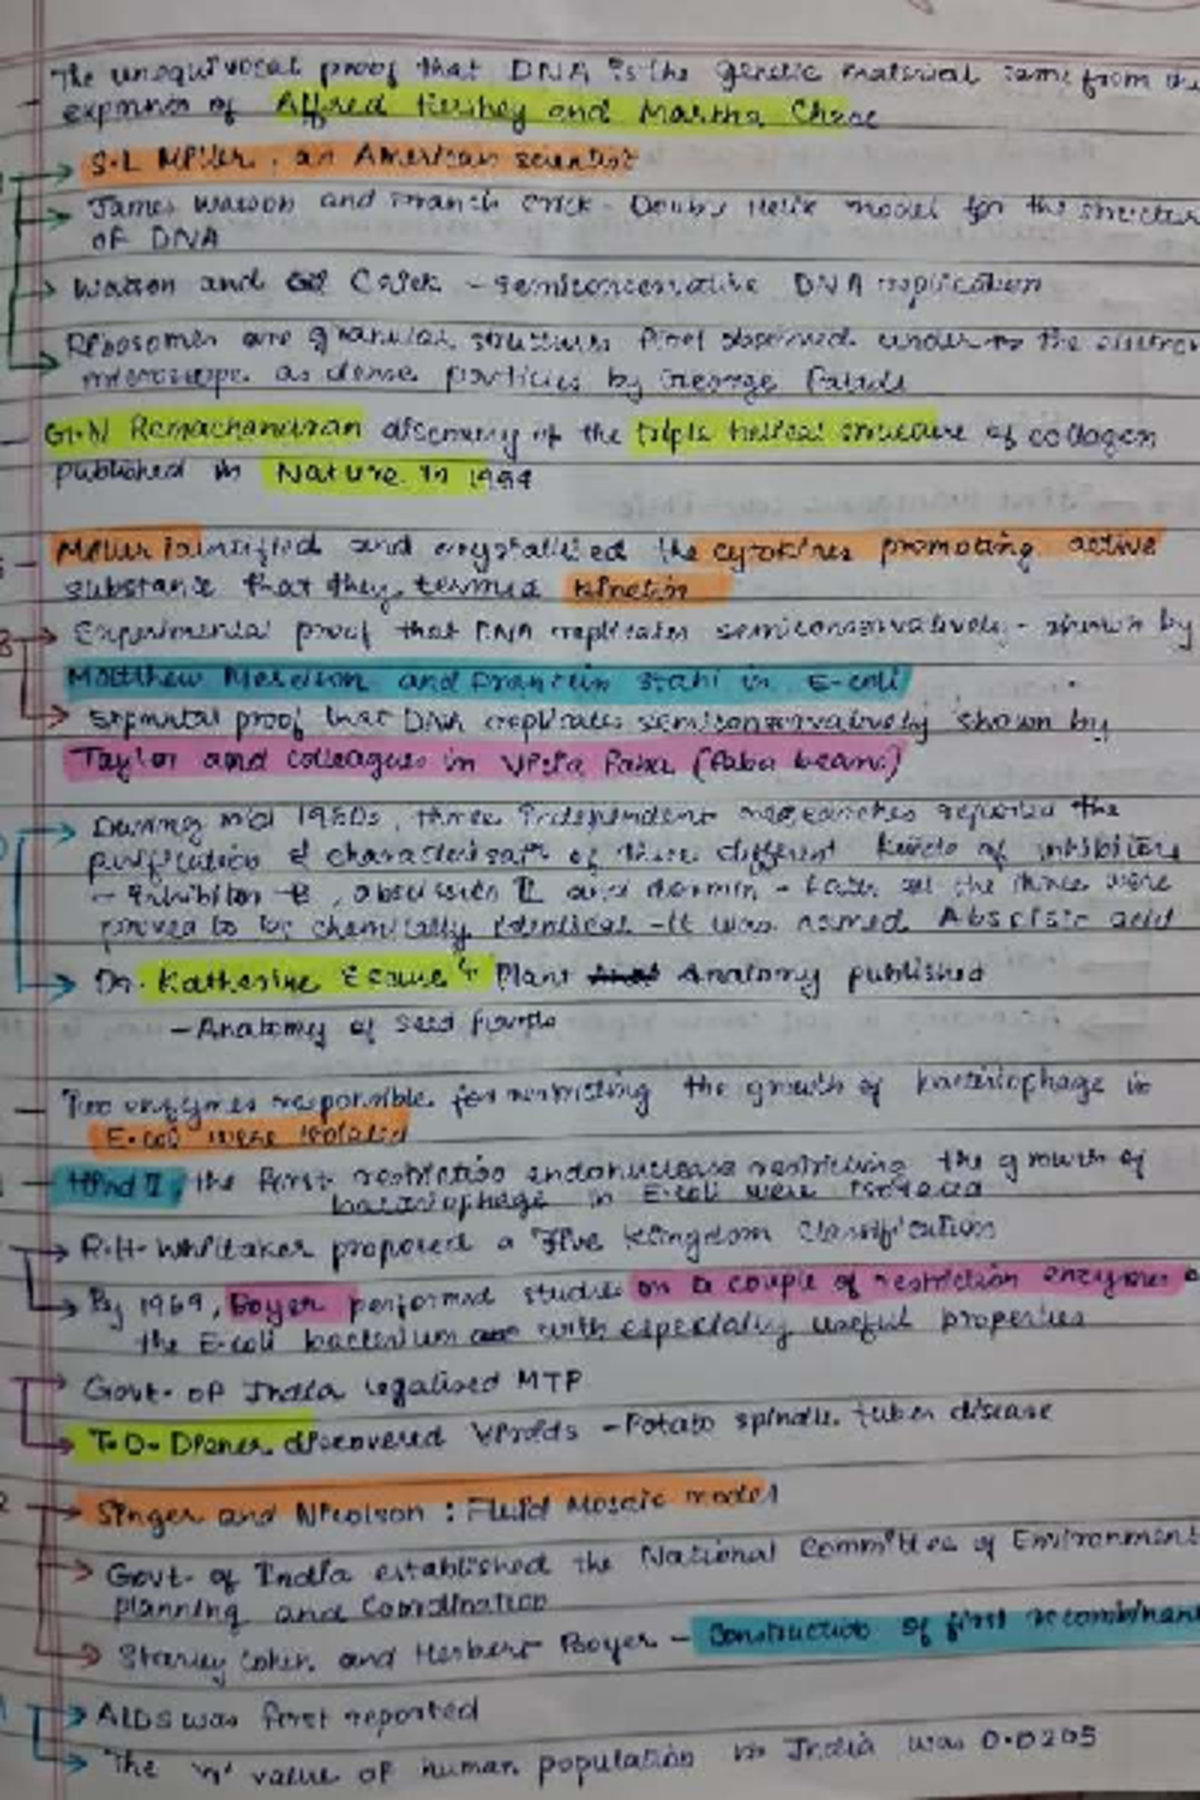 The unequivocal proof that DNA is the genetic material came from the
- expriments of Alfred Hershey and Martha Chase
→ S.L Miller, an American scientist
→ James Watson and Francis Crick - Double Helix model for the structure
OF DNA
→ Watson and Crick - semiconservative DNA replication
→ Ribosomes are granular structures first observed under the electron
microscope as dense particles by George Palade
- G.N Ramachandran discovery of the triple helical structure of collagen
published in Nature in 1954
- Miller identified and crystallised the cytokines promoting active
substance that they termed kinetin
→ Experimental proof that DNA replicates semiconservatively - shown by
Matthew Meselson and Franklin Stahl in E-coli
→ Exprimental proof that DNA replicates semiconservatively shown by
Taylor and colleagues in Vicia Faba (faba beans)
→ During mid 1960s, three independent researches reported the
purification & characterisatn of three different kinds of inhibitors
- Inhibitor -B, abscission II and dormin - Later all the three were
proved to be chemically identical - It was named Abscisic acid
→ Dr. Katherine Esau's Plant Anatomy published
- Anatomy of seed plants
- Two enzymes responsible for restricting the growth of bacteriophage in
E-coli were isolated
- Hind II, the first restriction endonuclease restricting the growth of
bacteriophage in E-coli were isolated
→ R.H-Whittaker proposed a Five Kingdom Classification
→ By 1969, Boyer performed studies on a couple of restriction enzymes of
the E-coli bacterium with especially useful properties
→ Govt- of India legalised MTP
→ T.O- Diener discovered Viroids - Potato spindle tuber disease
→ Singer and Nicolson : Fluid Mosaic model
→ Govt- of India established the National Committee of Environment
planning and Coordination
→ Stanley Cohen and Herbert Boyer - Construction of first recombinant
→ AIDS was first reported
→ The 'r' value of human population in India was 0.0205